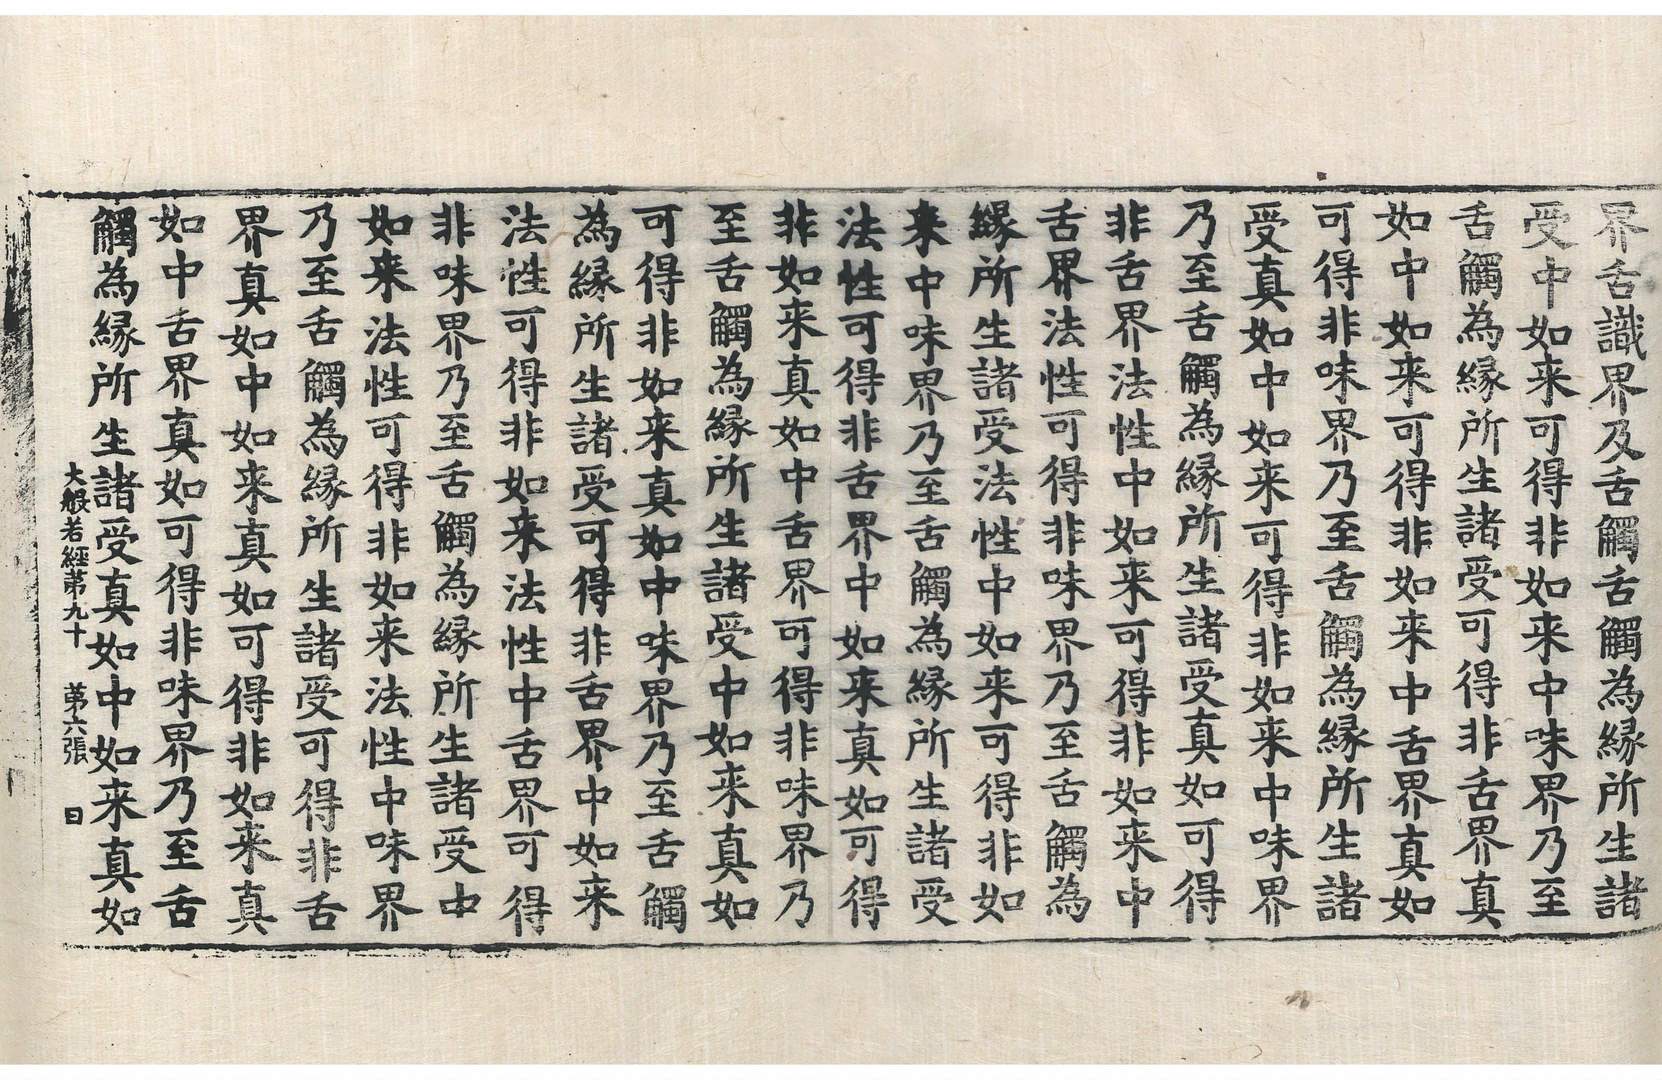 界舌識界及舌觸舌觸為縁所生諸
受中如来可得非如来中味界乃至
舌觸為縁所生諸受可得非舌界真
如中如来可得非如来中舌界真如
可得非味界乃至舌觸為縁所生諸
受真如中如来可得非如来中味界
乃至舌觸為縁所生諸受真如可得
非舌界法性中如来可得非如来中
舌界法性可得非味界乃至舌觸為
縁所生諸受法性中如来可得非如
来中味界乃至舌觸為縁所生諸受
法性可得非舌界中如来真如可得
非如来真如中舌界可得非味界乃
至舌觸為縁所生諸受中如来真如
可得非如来真如中味界乃至舌觸
為縁所生諸受可得非舌界中如来
法性可得非如来法性中舌界可得
非味界乃至舌觸為縁所生諸受中
如来法性可得非如来法性中味界
乃至舌觸為縁所生諸受可得非舌
界真如中如来真如可得非如来真
如中舌界真如可得非味界乃至舌
觸為縁所生諸受真如中如来真如
大般若經第九十 第六張 日